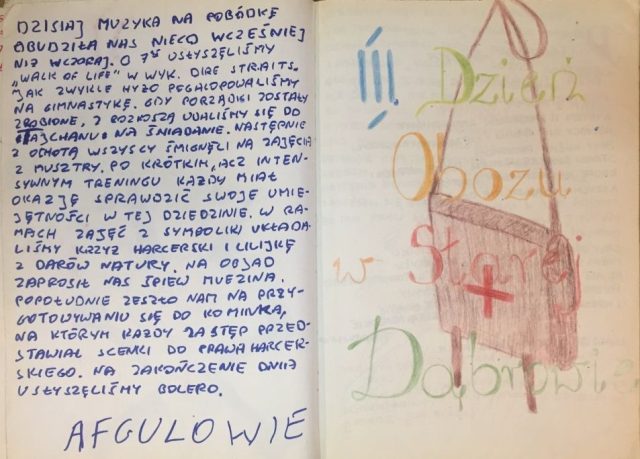 DZISIAJ MUZYKA NA POBÓDKĘ
OBUDZIŁA NAS NIECO WCZEŚNIEJ
NIŻ WCZORAJ. O 7³⁰ USŁYSZĘLIŚMY
„WALK OF LIFE” W WYK. DIRE STRAITS.
JAK ZWYKLE HYŻO POGALOPOWALIŚMY
NA GIMNASTYKĘ. GDY PORZĄDKI ZOSTAŁY
ZROBIONE, Z ROZKOSZĄ UDALIŚMY SIĘ DO
TAJCHANU: NA ŚNIADANIE. NASTĘPNIE
Z OCHOTĄ WSZYSCY ŚMIGNĘLI NA ZAJĘCIA
Z MUSZTRY. PO KRÓTKIM, ACZ INTEN-
SYWNYM TRENINGU KAŻDY MIAŁ
OKAZJĘ SPRAWDZIĆ SWOJE UMIE-
JĘTNOŚCI W TEJ DZIEDZINIE. W RA-
MACH ZAJĘĆ Z SYMBOLIKI UKŁADA-
LIŚMY KRZYŻ HARCERSKI I LILIJKĘ
Z DARÓW NATURY. NA OBIAD
ZAPROSIŁ NAS ŚPIEW MUEZINA.
POPOŁUDNIE ZESZŁO NAM NA PRZY-
GOTOWYWANIU SIĘ DO KOMINKA,
NA KTÓRYM KAŻDY ZASTĘP PRZED-
STAWIAŁ SCENKI DO PRAWA HARCER-
SKIEGO. NA ZAKOŃCZENIE DNIA
USŁYSZĘLIŚMY BOLERO.
AFGULOWIE
III Dzień
Obozu
w Starej
Dąbrowie